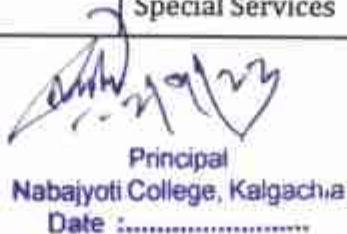 Special Services
Principal
Nabajyoti College, Kalgachia
Date :........................